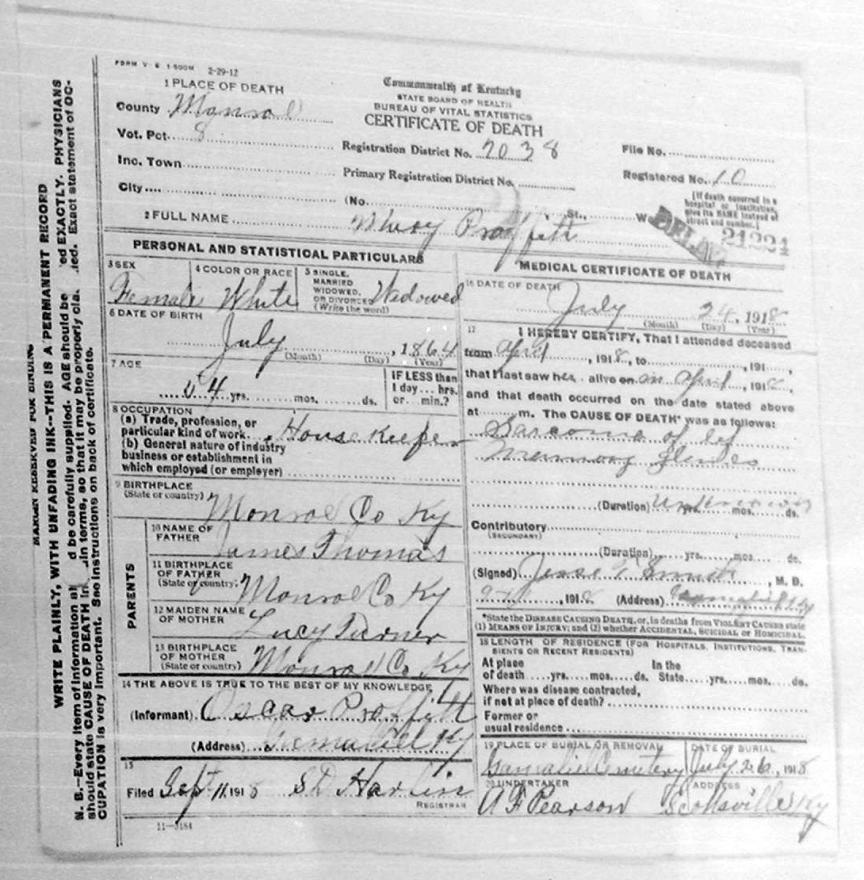 FORM V. S. 1-500M 2-29-12
1 PLACE OF DEATH
County Monroe
Vot. Pct. 8
Inc. Town
City
Commonwealth of Kentucky
STATE BOARD OF HEALTH
BUREAU OF VITAL STATISTICS
CERTIFICATE OF DEATH
Registration District No. 7038
Primary Registration District No.
(No. St., W
File No.
Registered No. 10
[If death occurred in a
hospital or institution,
give its NAME instead of
street and number.]
21224
2 FULL NAME Proffitt
PERSONAL AND STATISTICAL PARTICULARS
3 SEX
Female
4 COLOR OR RACE
White
5 SINGLE,
MARRIED
WIDOWED,
OR DIVORCED
(Write the word)
Widowed
6 DATE OF BIRTH
July , 1864
(Month) (Day) (Year)
7 AGE
54 yrs. mos. ds.
IF LESS than
1 day... hrs.
or... min.?
8 OCCUPATION
(a) Trade, profession, or
particular kind of work House Keeper
(b) General nature of industry
business or establishment in
which employed (or employer)
9 BIRTHPLACE
(State or country)
Monroe Co Ky
PARENTS
10 NAME OF
FATHER
James Thomas
11 BIRTHPLACE
OF FATHER
(State or country)
Monroe Co Ky
12 MAIDEN NAME
OF MOTHER
Lucy Turner
13 BIRTHPLACE
OF MOTHER
(State or country)
Monroe Co Ky
14 THE ABOVE IS TRUE TO THE BEST OF MY KNOWLEDGE
(Informant) Oscar Proffitt
(Address) Ky
15
Filed Sept 11, 1918 S D Harlin
REGISTRAR
11-3184
MEDICAL CERTIFICATE OF DEATH
16 DATE OF DEATH
July 24, 1918
(Month) (Day) (Year)
17 I HEREBY CERTIFY, That I attended deceased
from April, 1918, to , 191
that I last saw her alive on in April, 1918,
and that death occurred on the date stated above
at m. The CAUSE OF DEATH* was as follows:
Sarcoma of
mammary glands
(Duration) unknown yrs. mos. ds.
Contributory
(SECONDARY)
(Duration) yrs. mos. ds.
(Signed) Jesse F Smith, M. D.
1918 (Address) Gamaliel Ky
*State the DISEASE CAUSING DEATH, or, in deaths from VIOLENT CAUSES state
(1) MEANS OF INJURY; and (2) whether ACCIDENTAL, SUICIDAL or HOMICIDAL.
18 LENGTH OF RESIDENCE (FOR HOSPITALS, INSTITUTIONS, TRAN-
SIENTS OR RECENT RESIDENTS)
At place
of death yrs. mos. ds.
In the
State yrs. mos. ds.
Where was disease contracted,
if not at place of death?
Former or
usual residence
19 PLACE OF BURIAL OR REMOVAL
Gamaliel Cemetery
DATE OF BURIAL
July 26, 1918
20 UNDERTAKER
A F Pearson
ADDRESS
Scottsville Ky
MARGIN RESERVED FOR BINDING
WRITE PLAINLY, WITH UNFADING INK--THIS IS A PERMANENT RECORD
N. B.--Every item of information d be carefully supplied. AGE should be ed EXACTLY. PHYSICIANS
should state CAUSE OF DEATH in in terms, so that it may be properly cla ied. Exact statement of OC-
CUPATION is very important. See instructions on back of certificate.